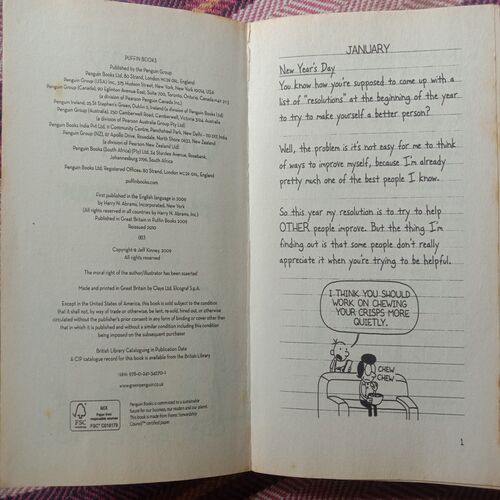 PUFFIN BOOKS
Published by the Penguin Group
Penguin Books Ltd, 80 Strand, London WC2R 0RL, England
Penguin Group (USA) Inc., 375 Hudson Street, New York, New York 10014, USA
Penguin Group (Canada), 90 Eglinton Avenue East, Suite 700, Toronto, Ontario, Canada M4P 2Y3
(a division of Pearson Penguin Canada Inc.)
Penguin Ireland, 25 St Stephen's Green, Dublin 2, Ireland (a division of Penguin Books Ltd)
Penguin Group (Australia), 250 Camberwell Road, Camberwell, Victoria 3124, Australia
(a division of Pearson Australia Group Pty Ltd)
Penguin Books India Pvt Ltd, 11 Community Centre, Panchsheel Park, New Delhi – 110 017, India
Penguin Group (NZ), 67 Apollo Drive, Rosedale, North Shore 0632, New Zealand
(a division of Pearson New Zealand Ltd)
Penguin Books (South Africa) (Pty) Ltd, 24 Sturdee Avenue, Rosebank,
Johannesburg 2196, South Africa
Penguin Books Ltd, Registered Offices: 80 Strand, London WC2R 0RL, England
puffinbooks.com
First published in the English language in 2009
by Harry N. Abrams, Incorporated, New York
(All rights reserved in all countries by Harry N. Abrams, Inc.)
Published in Great Britain in Puffin Books 2009
Reissued 2010
Copyright © Jeff Kinney, 2009
All rights reserved
The moral right of the author/illustrator has been asserted
Made and printed in Great Britain by Clays Ltd, Elcograf S.p.A.
Except in the United States of America, this book is sold subject to the condition
that it shall not, by way of trade or otherwise, be lent, re-sold, hired out, or otherwise
circulated without the publisher's prior consent in any form of binding or cover other than
that in which it is published and without a similar condition including this condition
being imposed on the subsequent purchaser
British Library Cataloguing in Publication Data
A CIP catalogue record for this book is available from the British Library
www.greenpenguin.co.uk
FSC
MIX
Paper from
responsible sources
FSC® C018179
Penguin Books is committed to a sustainable
future for our business, our readers and our planet.
This book is made from Forest Stewardship
Council™ certified paper.
JANUARY
New Year's Day
You know how you're supposed to come up with a
list of "resolutions" at the beginning of the year
to try to make yourself a better person?
Well, the problem is it's not easy for me to think
of ways to improve myself, because I'm already
pretty much one of the best people I know.
So this year my resolution is to try to help
OTHER people improve. But the thing I'm
finding out is that some people don't really
appreciate it when you're trying to be helpful.
I THINK YOU SHOULD
WORK ON CHEWING
YOUR CRISPS MORE
QUIETLY.
CHEW
CHEW
1